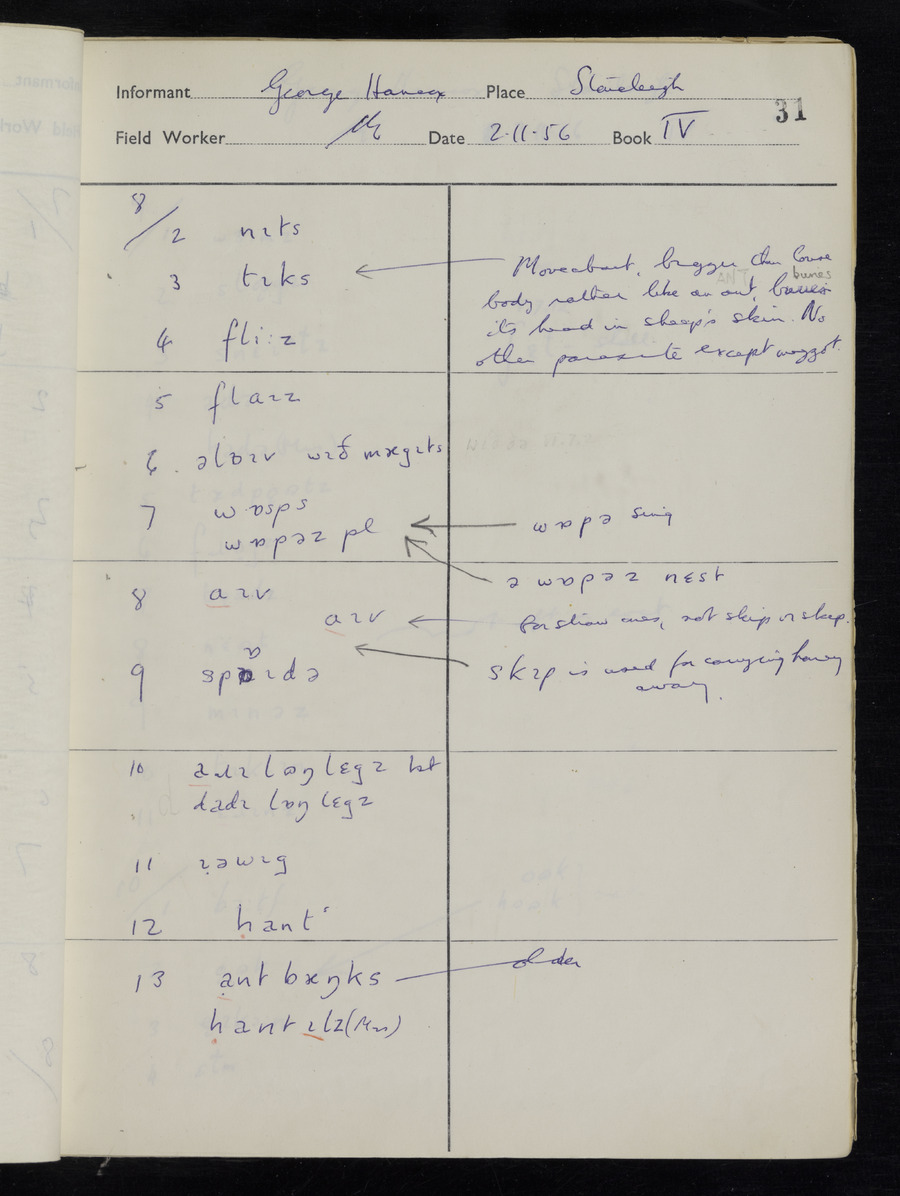 Informant George Hancox Place Stoneleigh
31
Field Worker Date 2·11·56 Book IV
8/2 nɪts
3 tɪks
Moveabout, bigger than louse
ANT buries
body rather like an ant, buries
its head in sheep's skin. No
other parasite except maggot.
4 fli:z
5 flaɪz
6 əlaɪv wɪð mægɪts
7 wasps
wɒpəz pl
wɒpə sing
ə wɒpəz nɛst
8 aɪv
aɪv
for straw ones, not skip or skep.
skɪp is used for carrying honey
away.
9 spaɪdə
10 adɪ lɒŋ lɛgz
dadɪ lɒŋ lɛgz
11 ɪəwɪg
12 hant
13 ant bæŋks older
hant ɪlz (Mrs)